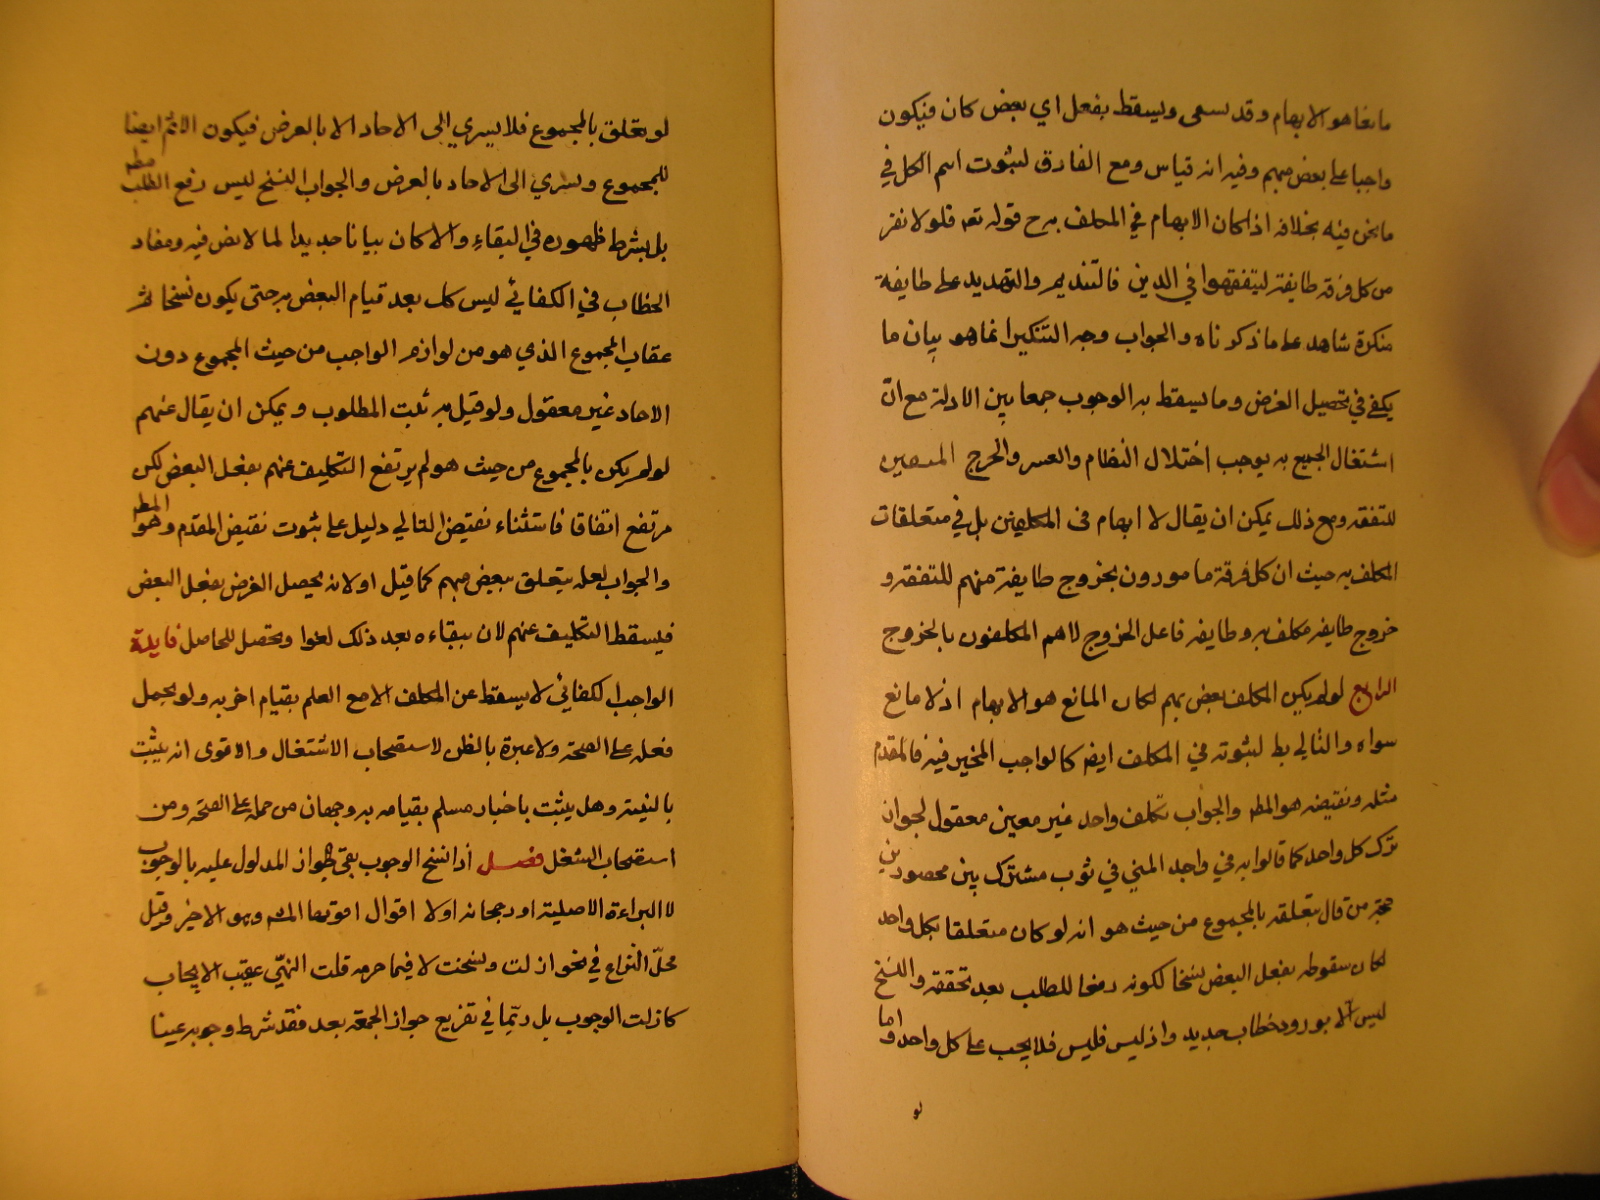 مانعا هو الابهام وقد سمى ويسقط بفعل اي بعض كان فيكون
واجبا على بعض مبهم وفيه انه قياس ومع الفارق لثبوت اسم الكل في
ما نحن فيه بخلافه اذا كان الابهام في المكلف به ح قوله تعه فلولا نفر
من كل فرقة طايفة ليتفقهوا في الدين فالتنديم والتهديد على طايفة
منكرة شاهد على ما ذكرناه والجواب وجه التنكير انما هو بيان ما
يكفي في تحصيل الغرض وما يسقط به الوجوب جمعا بين الادلة مع انّ
اشتغال الجميع به يوجب اختلال النظام والعسر والحرج المنفيين
للتفقه ومع ذلك يمكن ان يقال لا ابهام في المكلفين بل في متعلقات
المكلف به حيث ان كل فرقة مامورون بخروج طايفة منهم للتفقه و
خروج طايفه مكلف به وطايفه فاعل الخروج لا هم المكلفون بالخروج
الرابع لو لم يكن المكلف بعض مبهم لكان المانع هو الابهام اذ لا مانع
سواه والتالي بط لثبوته في المكلف ايضا كالواجب المخير فيه فالمقدم
مثله ونقيضه هو المطه والجواب تكلف واحد غير معين معقول لجواز
ترك كل واحد كما قالوا به في واجد المني في ثوب مشترك بين محصورين
حجة من قال بتعلقه بالمجموع من حيث هو انه لو كان متعلقا بكل واحد
لكان سقوطه بفعل البعض نسخا لكونه رفعا للطلب بعد تحققه والنسخ
ليس الا بورود خطاب جديد واذ ليس فليس فلا يجب على كل واحد واما
لو
لو تعلق بالمجموع فلا يسري الى الاحاد الا بالعرض فيكون الاثم ايضا
للمجموع ويسري الى الاحاد بالعرض والجواب النسخ ليس رفع الطلب مطه
بل بشرط ظهوره في البقاء والا كان بيانا جديدا لما لا نص فيه ومفاد
الخطاب في الكفائي ليس كك بعد قيام البعض به حتى يكون نسخا ثم
عقاب المجموع الذي هو من لوازم الواجب من حيث المجموع دون
الاحاد غير معقول ولو قيل به ثبت المطلوب ويمكن ان يقال عنهم
لو لم يكن بالمجموع من حيث هو لم يرتفع التكليف عنهم بفعل البعض لكن
مرتفع اتفاقا فاستثناء نقيض التالي دليل على ثبوت نقيض المقدم وهو المطه
والجواب لعله يتعلق ببعض مبهم كما قيل او لانه يحصل الغرض بفعل البعض
فيسقط التكليف عنهم لان ببقاءه بعد ذلك لغوا وتحصيل للحاصل فايدة
الواجب الكفائي لا يسقط عن المكلف الا مع العلم بقيام اخر به ولو بحمل
فعله على الصحة ولا عبرة بالظن لاستصحاب الاشتغال والاقوى انه يثبت
بالبينة وهل يثبت باخبار مسلم بقيامه به وجهان من حمله على الصحة ومن
استصحاب الشغل فصل اذا نسخ الوجوب بقى الجواز المدلول عليه بالوجوب
لا البراءة الاصلية او رجحانه اولا اقوال اقويها وهو الاخير وقيل
محلّ النزاع في نحو ازلت ونسخت لا فيما حرمه قلت النهي عقيب الايجاب
كازلت الوجوب بل ربّما في تفريع جواز الجمعة بعد فقد شرط وجوبه عينا